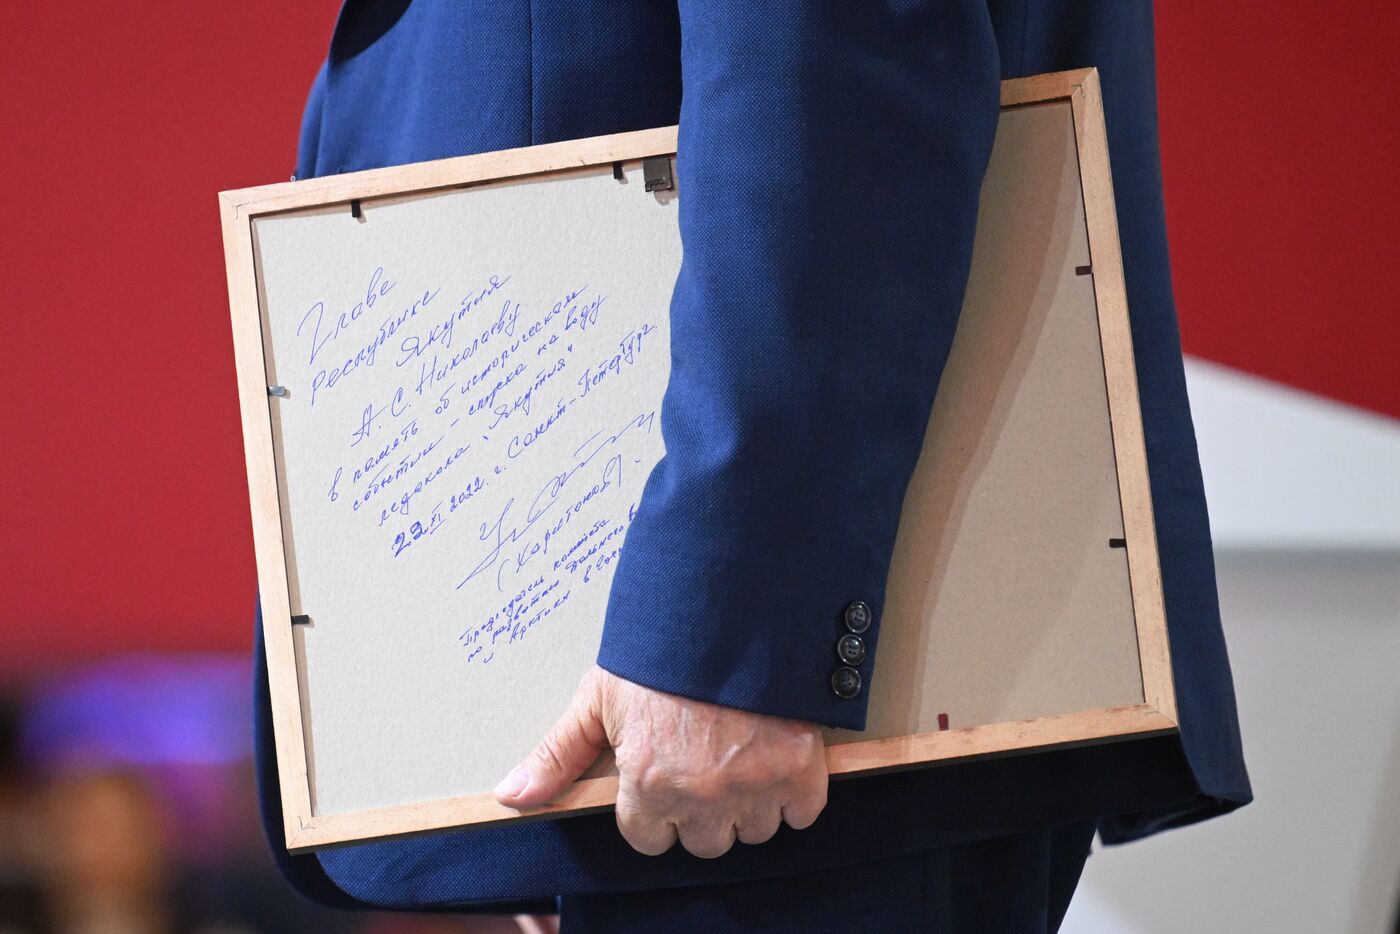 Главе
Республике
Якутия
А. С. Николаеву
в память об историческом
событии - спуска на воду
ледокола "Якутия"
22.XI 2022 г. Санкт-Петербург.
(Харитонов).
Председатель комитета
по развитию Дальнего В
и Арктики в